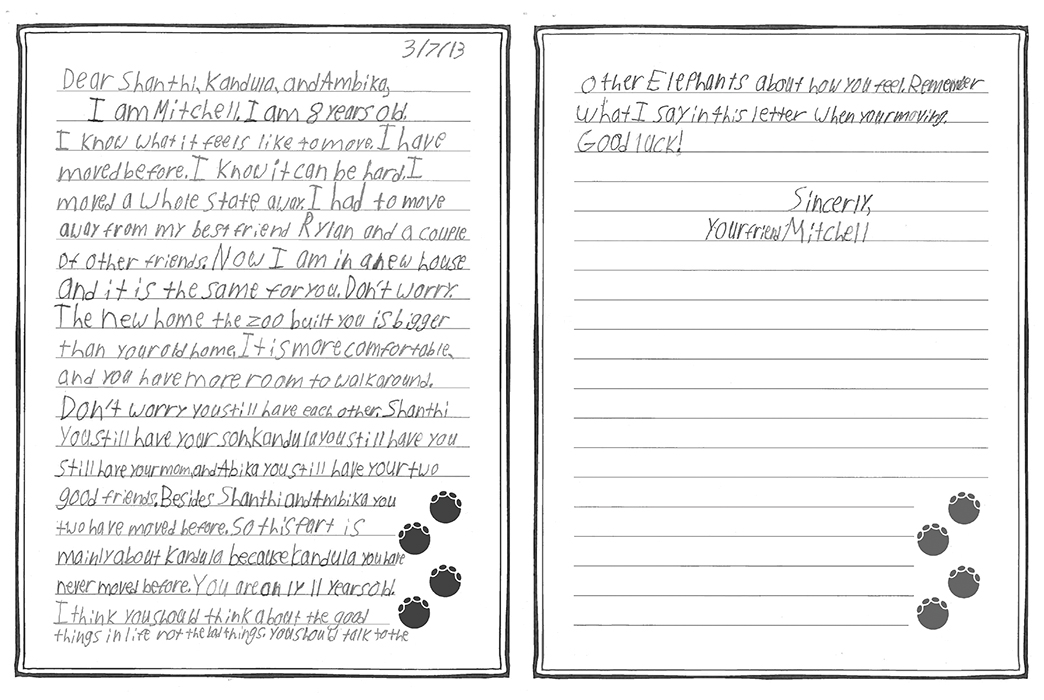 3/7/13
Dear Shanthi, Kandula, and Ambika,
I am Mitchell. I am 8 years old.
I know what it feels like to move. I have
moved before. I know it can be hard. I
moved a whole state away. I had to move
away from my best friend Rylan and a couple
of other friends. Now I am in a new house
and it is the same for you. Don't worry.
The new home the zoo built you is bigger
than your old home. It is more comfortable,
and you have more room to walk around.
Don't worry you still have each other. Shanthi
You still have your son, Kandula you still have you
still have your mom, and Abika you still have your two
good friends. Besides Shanthi and Ambika you
two have moved before. So this part is
mainly about Kandula because Kandula you have
never moved before. You are only 11 years old.
I think you should think about the good
things in life not the bad things. You should talk to the
other Elephants about how you feel. Remember
what I say in this letter when your moving.
Good luck!
Sincerly,
Your friend Mitchell